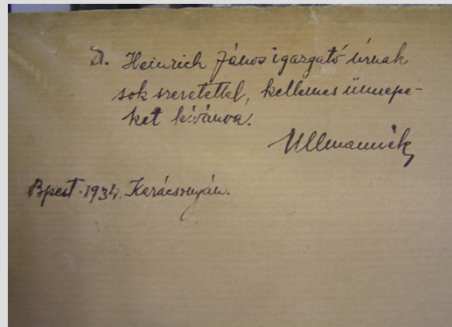 D. Heinrich János igazgató úrnak
sok szeretettel, kellemes ünnepe-
ket kívánva.
Ullmannék
Bpest. 1934. Karácsonyán.